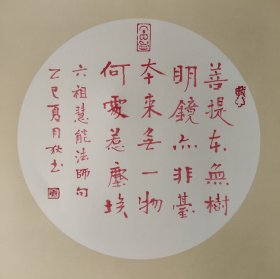 菩提本無樹
明鏡亦非臺
本来無一物
何處惹塵埃
六祖慧能法師句
乙巳夏月